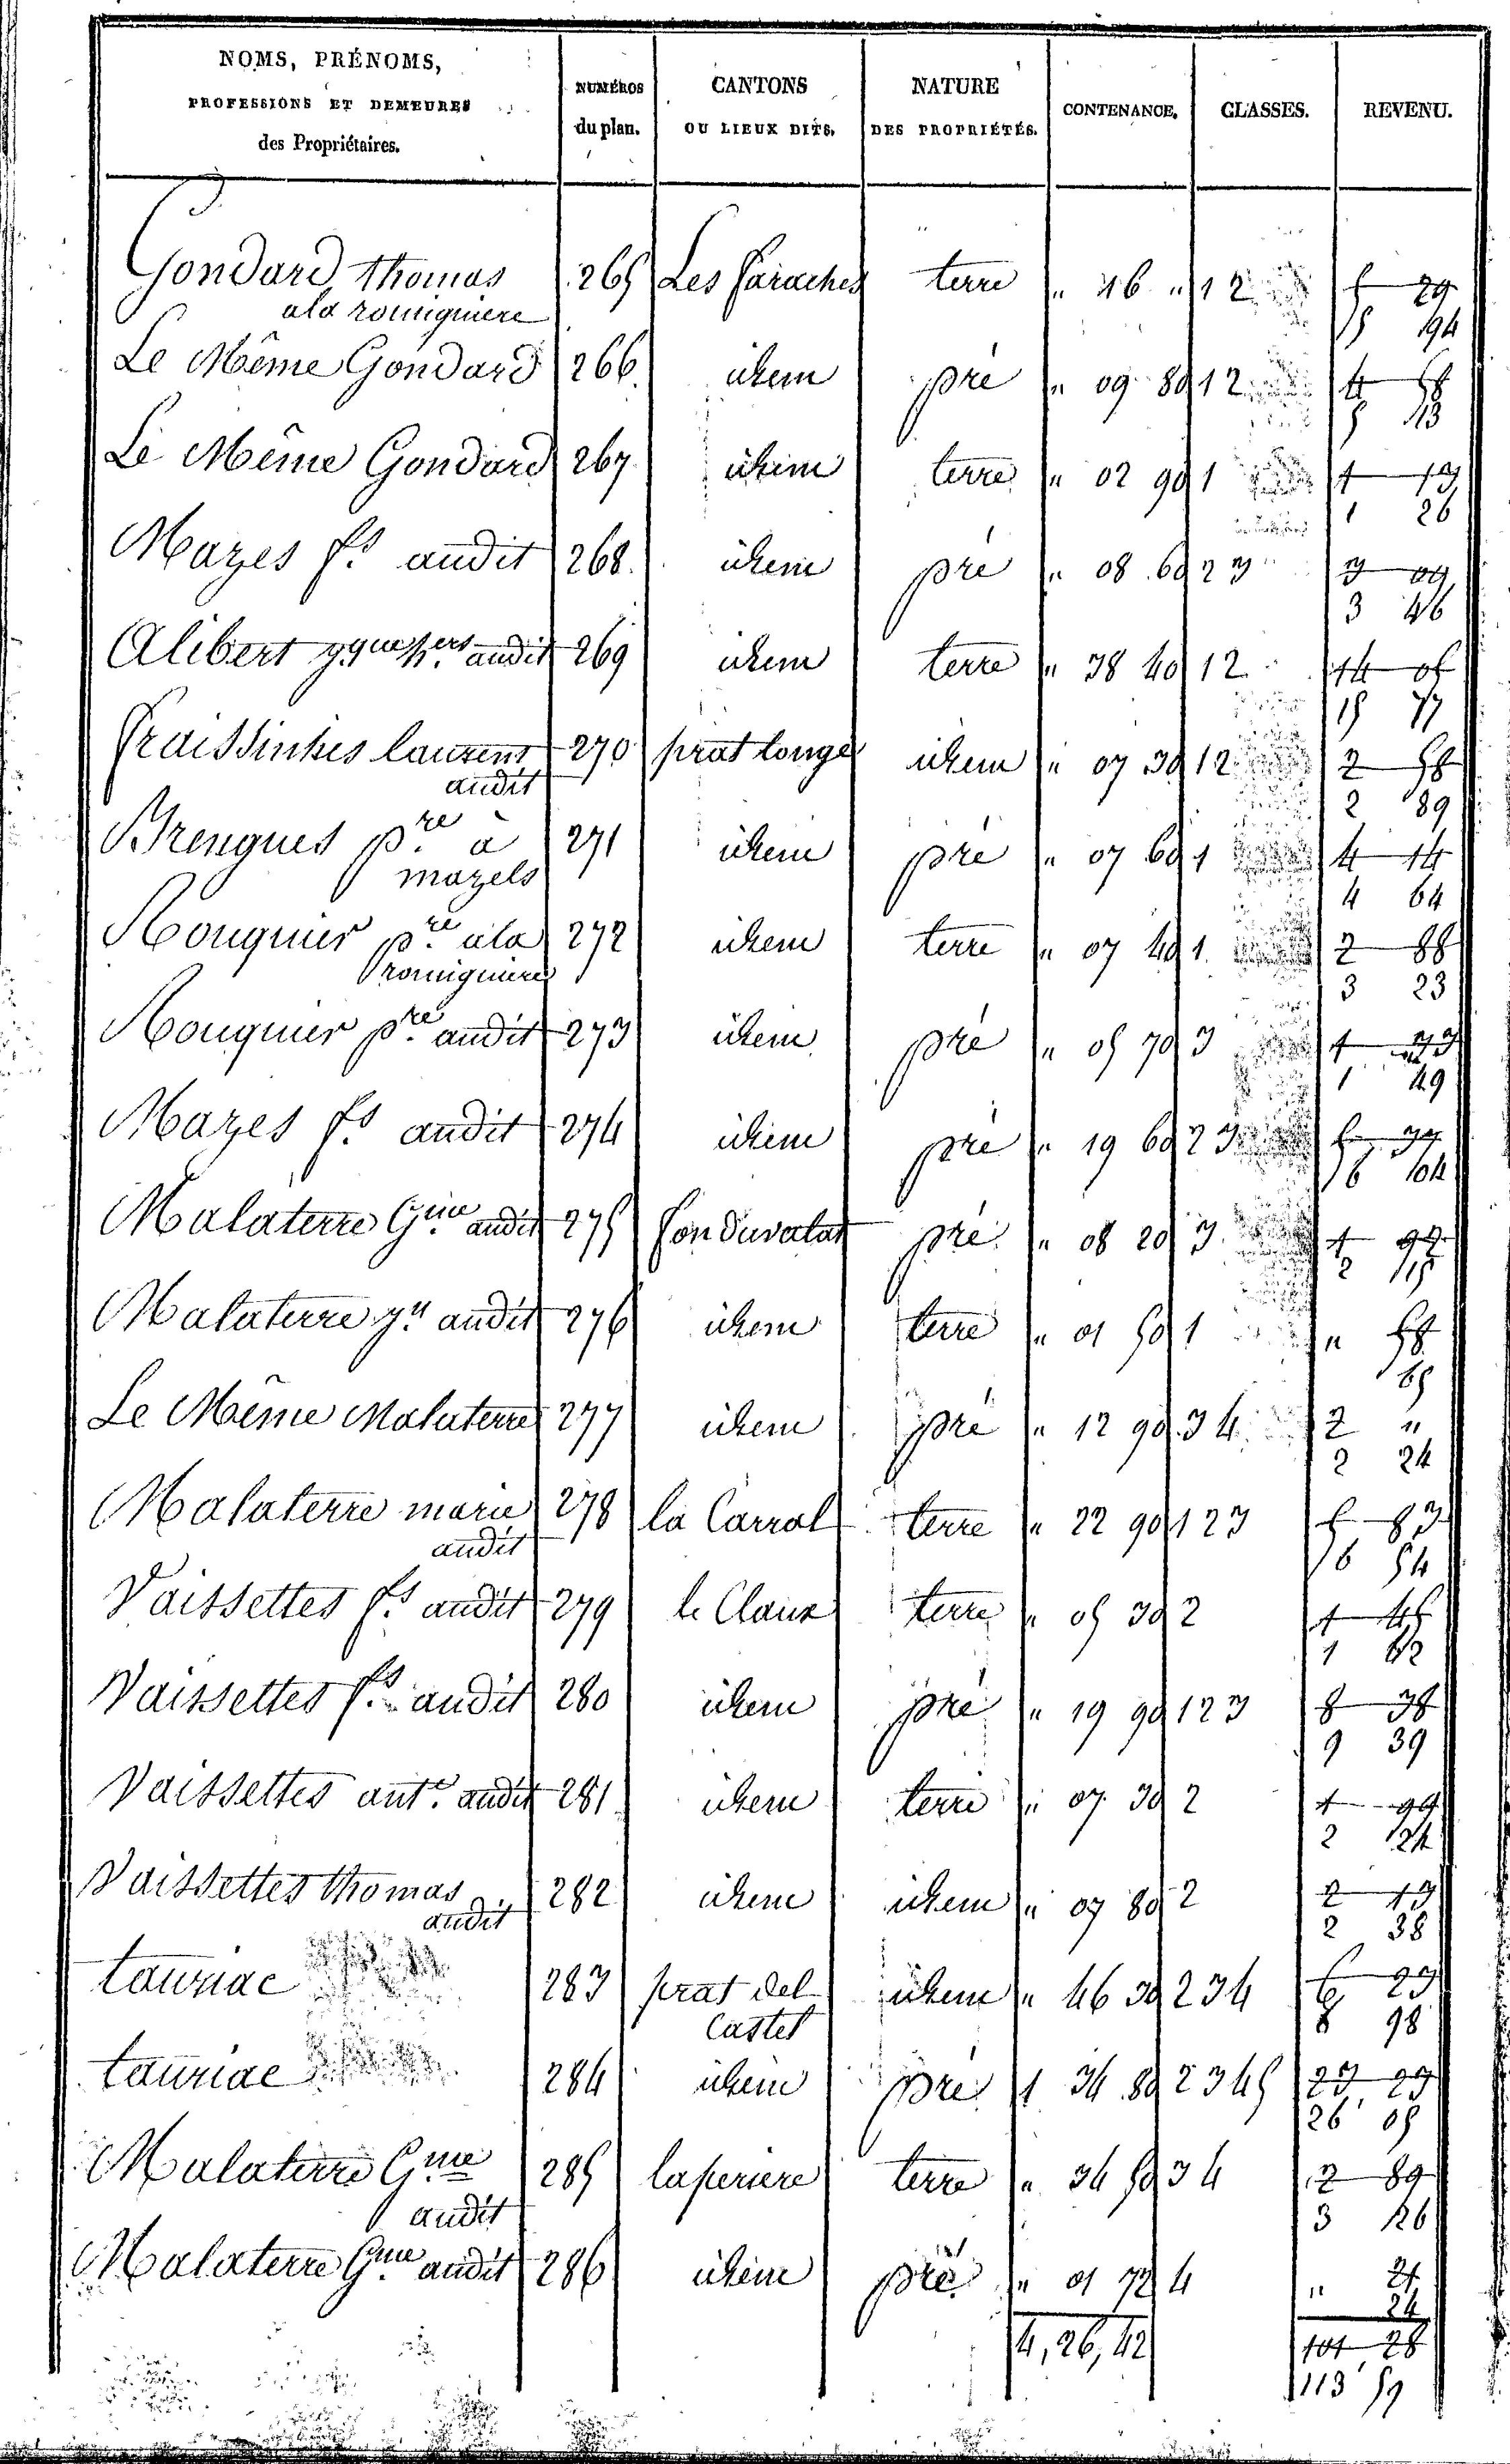 NOMS, PRÉNOMS,
PROFESSIONS ET DEMEURES
des Propriétaires.
NUMÉROS
du plan.
CANTONS
OU LIEUX DITS.
NATURE
DES PROPRIÉTÉS.
CONTENANCE.
CLASSES.
REVENU.
Gondard thomas 265 Les faraches terre " 16 " 1 2 5 29
ala romiguiere 5 94
Le Même Gondard 266 idem pré " 09 80 1 2 4 58
5 13
Le Même Gondard 267 idem terre " 02 90 1 1 13
1 26
Mazes fs audit 268 idem pré " 08 60 2 3 3 09
3 46
Alibert audit 269 idem terre " 38 40 1 2 14 05
15 77
fraissinhes laurens 270 prat longe idem " 07 30 1 2 2 58
audit 2 89
Brengues pre à 271 idem pré " 07 60 1 4 14
mazels 4 64
Rouquier pre ala 272 idem terre " 07 40 1 2 88
romiguiere 3 23
Rouquier pre audit 273 idem pré " 05 70 3 1 33
1 49
Mazes fs audit 274 idem pré " 19 60 2 3 5 39
6 04
Malaterre Gme audit 275 pré " 08 20 3 1 92
2 15
Malaterre audit 276 idem terre " 01 50 1 " 58
65
Le Même Malaterre 277 idem pré " 12 90 3 4 2 "
2 24
Malaterre marie 278 la Carral terre " 22 90 1 2 3 5 83
audit 6 54
Vaissettes fs audit 279 le Claux terre " 05 30 2 1 45
1 62
Vaissettes fs audit 280 idem pré " 19 90 1 2 3 8 38
9 39
Vaissettes ante audit 281 idem terre " 07 30 2 1 99
2 24
Vaissettes thomas 282 idem idem " 07 80 2 2 13
audit 2 38
tauriac 283 prat del idem " 46 30 2 3 4 6 23
Castel 6 98
tauriac 284 idem pré 1 34 80 2 3 4 5 23 23
26 05
Malaterre Gme 285 laperiere terre " 34 50 3 4 2 89
audit 3 26
Malaterre Gme audit 286 idem pré " 01 72 4 " 21
24
4,26,42 101 28
113 59